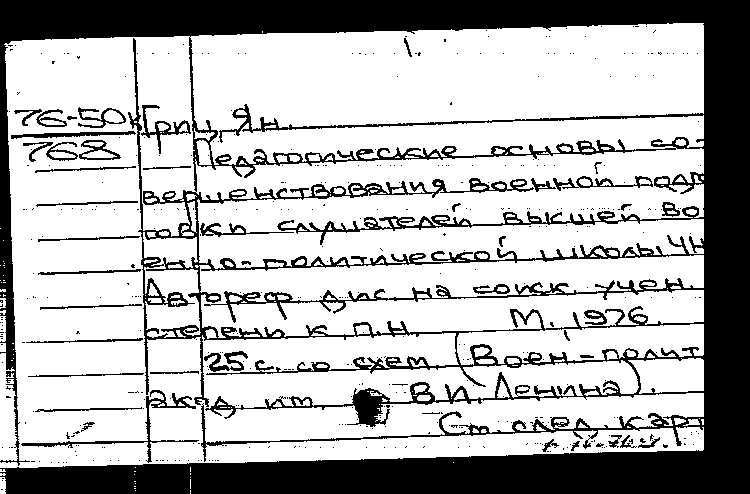 1.
76-50к Гриц, Ян.
768 Педагогические основы со-
вершенствования военной подго
товки слушателей высшей во
енно-политической школы ЧН
Автореф. дис. на соиск. учен.
степени к.п.н. М., 1976.
25 с. со схем. (Воен-полит.
акад. им. В.И. Ленина).
См. след. карт